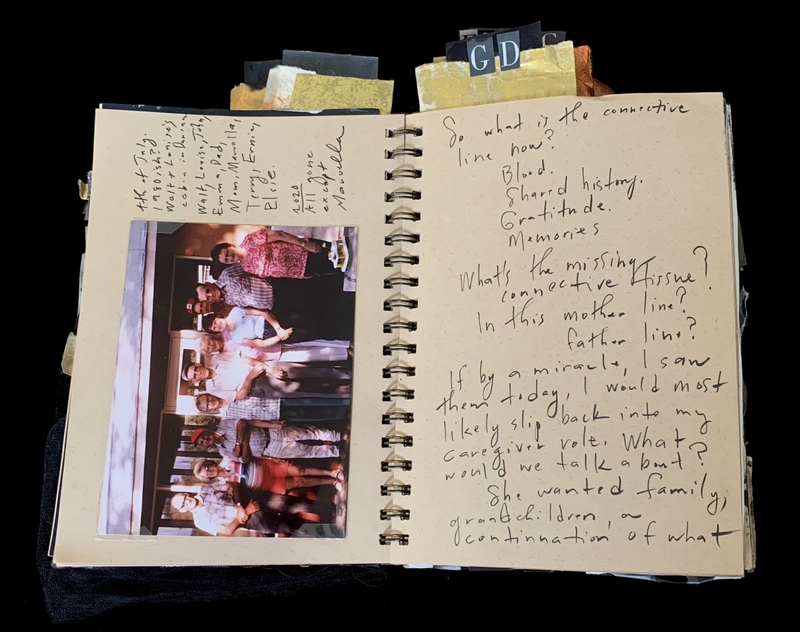 4th of July.
1980ish?
Walt + Louise's
cabin in
Walt, Louise, Toby,
Emma, Dad,
Mom, Marvella,
Terry, Ernie,
Elsie.
2020
All gone
except
Marvella
G D G
So what is the connective
line now?
Blood.
Shared history.
Gratitude.
Memories
What's the missing
connective tissue?
In this mother line?
father line?
If by a miracle, I saw
them today, I would most
likely slip back into my
caregiver role. What
would we talk about?
She wanted family,
grandchildren, a
continuation of what